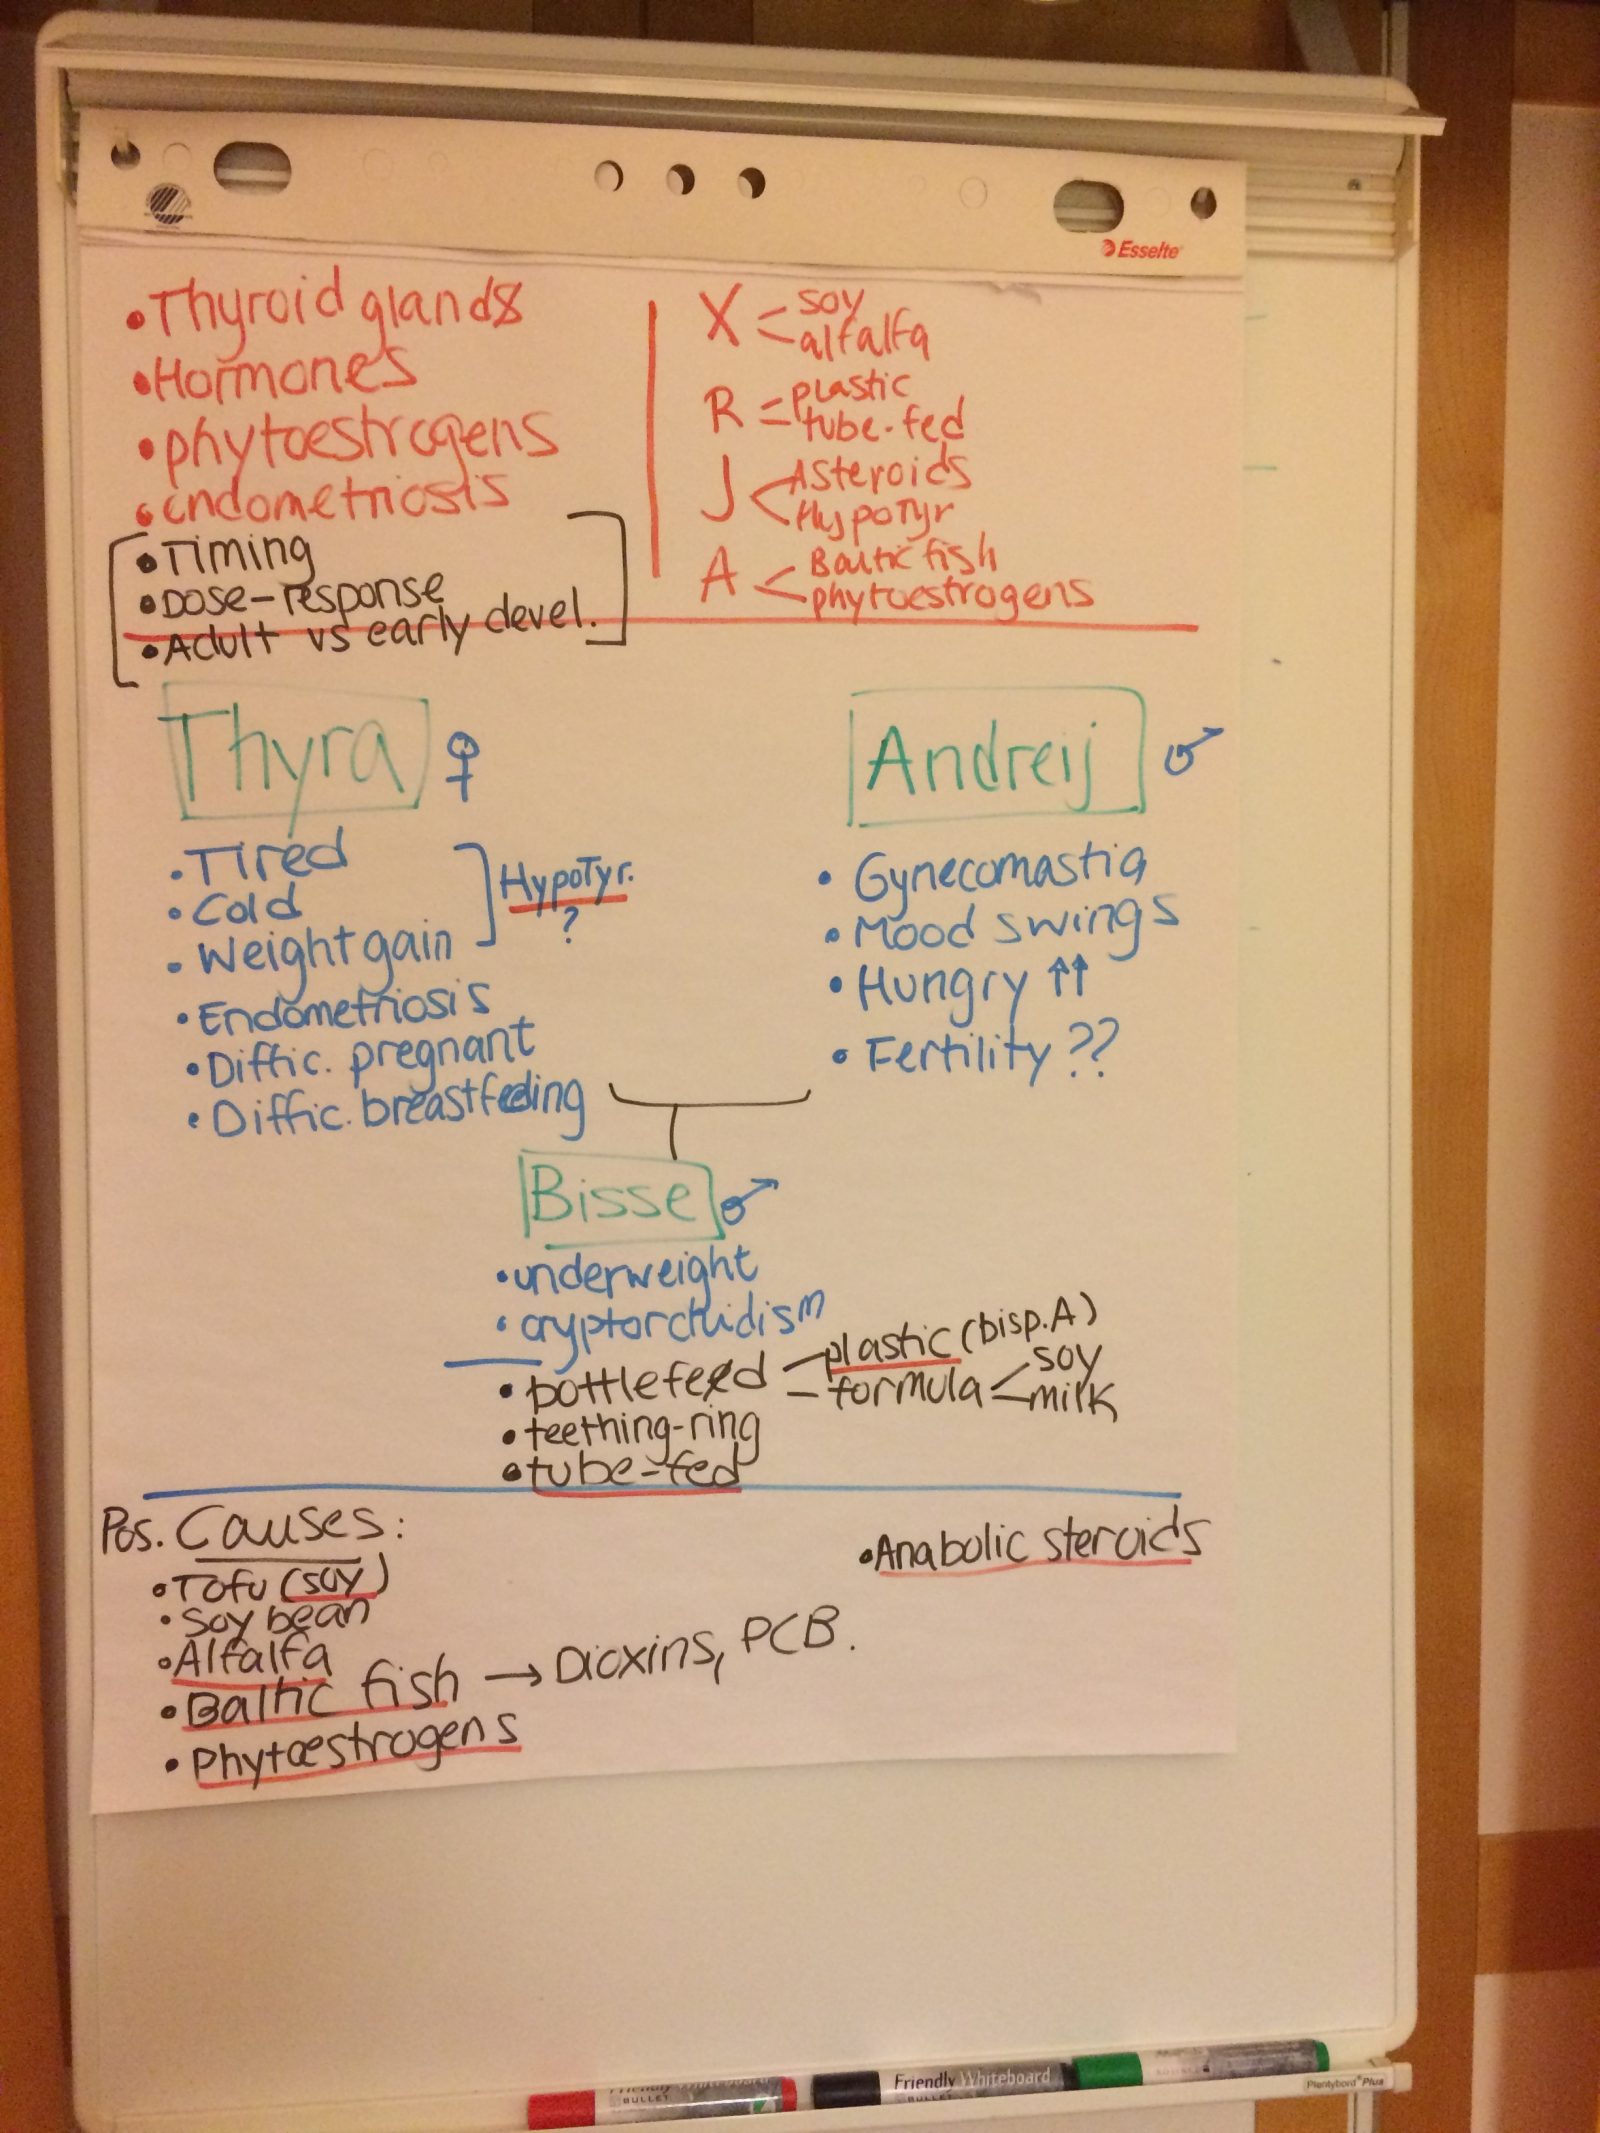 Esselte
•Thyroid glands
•Hormones
•phytoestrogens
•endometriosis
•Timing
•Dose-response
•Adult vs early devel.
X < soy
alfalfa
R = plastic
tube-fed
J < Asteroids
HypoTyr
A < Baltic fish
phytoestrogens
Thyra ♀
•Tired
•Cold
•Weight gain
HypoTyr.
?
•Endometriosis
•Diffic. pregnant
•Diffic. breastfeeding
Andreij ♂
•Gynecomastia
•Mood swings
•Hungry ↑↑
•Fertility ??
Bisse ♂
•underweight
•cryptorchidism
•bottlefeed – plastic (bisp.A)
– formula < soy
milk
•teething-ring
•tube-fed
Pos. Causes:
•Tofu (soy)
•Soy bean
•Alfalfa
•Baltic fish → Dioxins, PCB.
•Phytoestrogens
•Anabolic steroids
Friendly Whiteboard
BULLET
Friendly Whiteboard
BULLET
Plentybord Plus